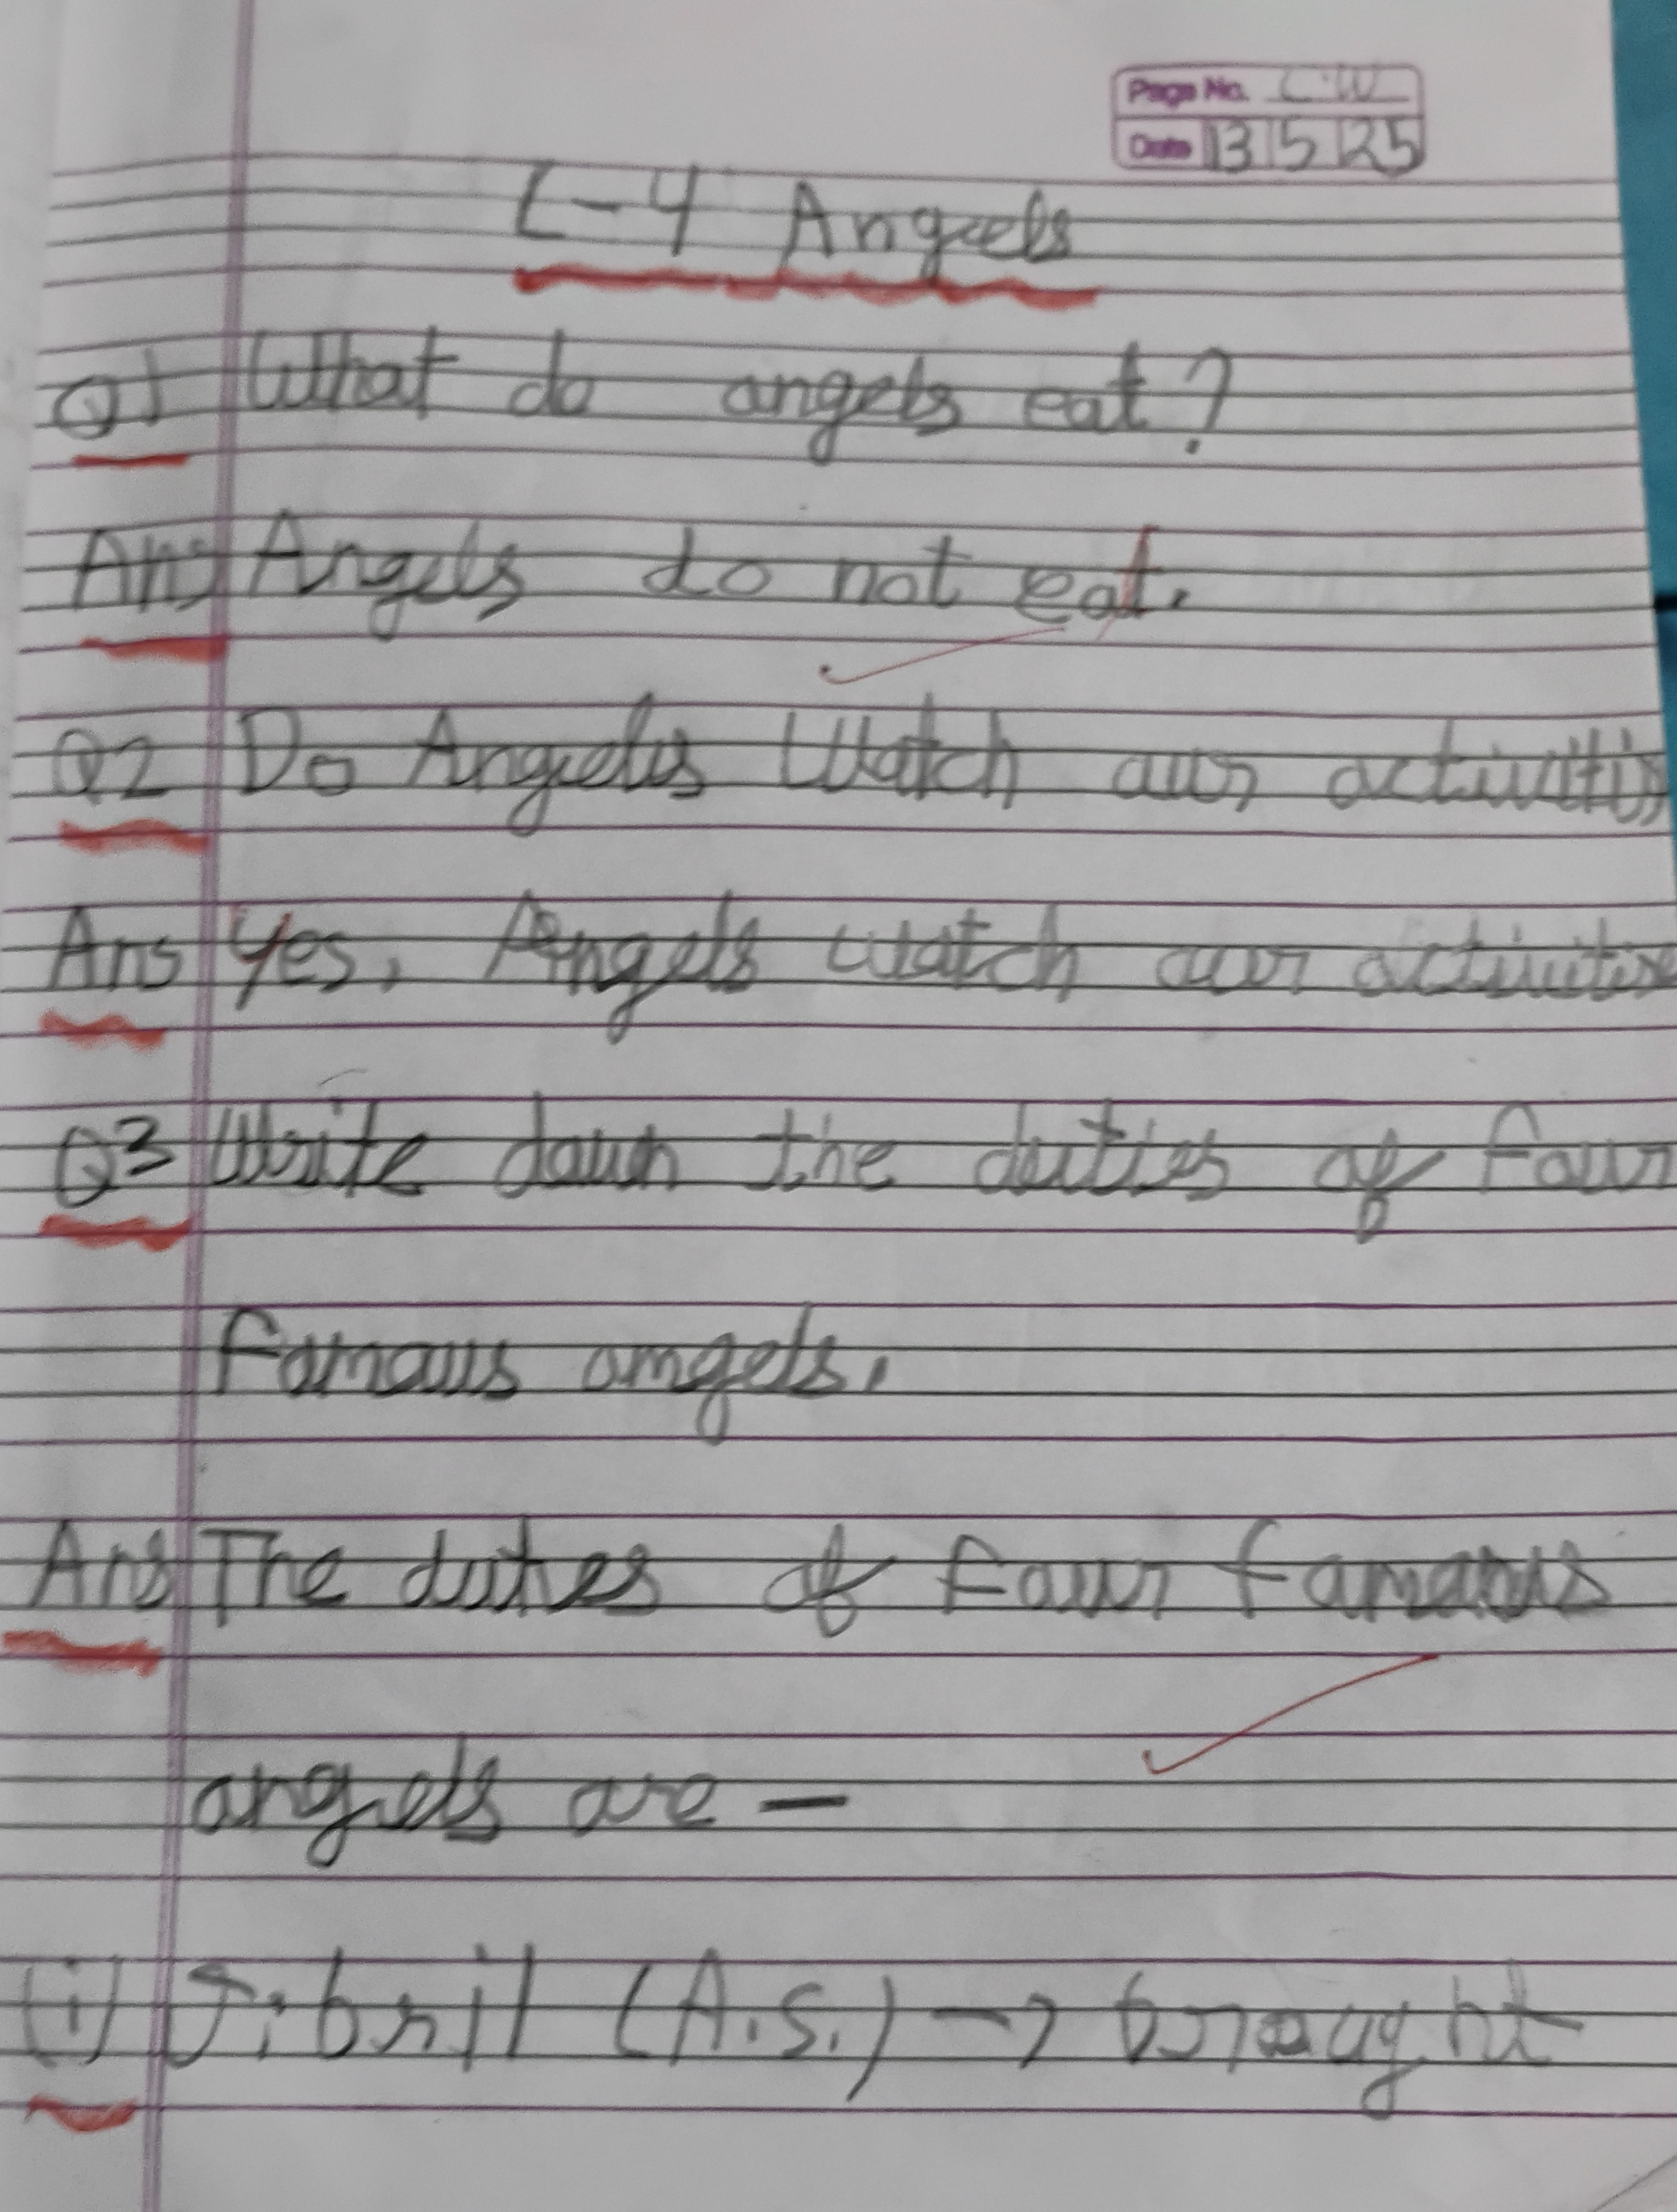 Page No. C.W
Date 13 5 25
L-4 Angels
Q1 What do angels eat?
Ans Angels do not eat.
Q2 Do Angels Watch our activities
Ans Yes, Angels watch our activities
Q3 Write down the duties of four
famous angels.
Ans The duties of four famous
angels are —
(i) Jibril (A.S.) → brought